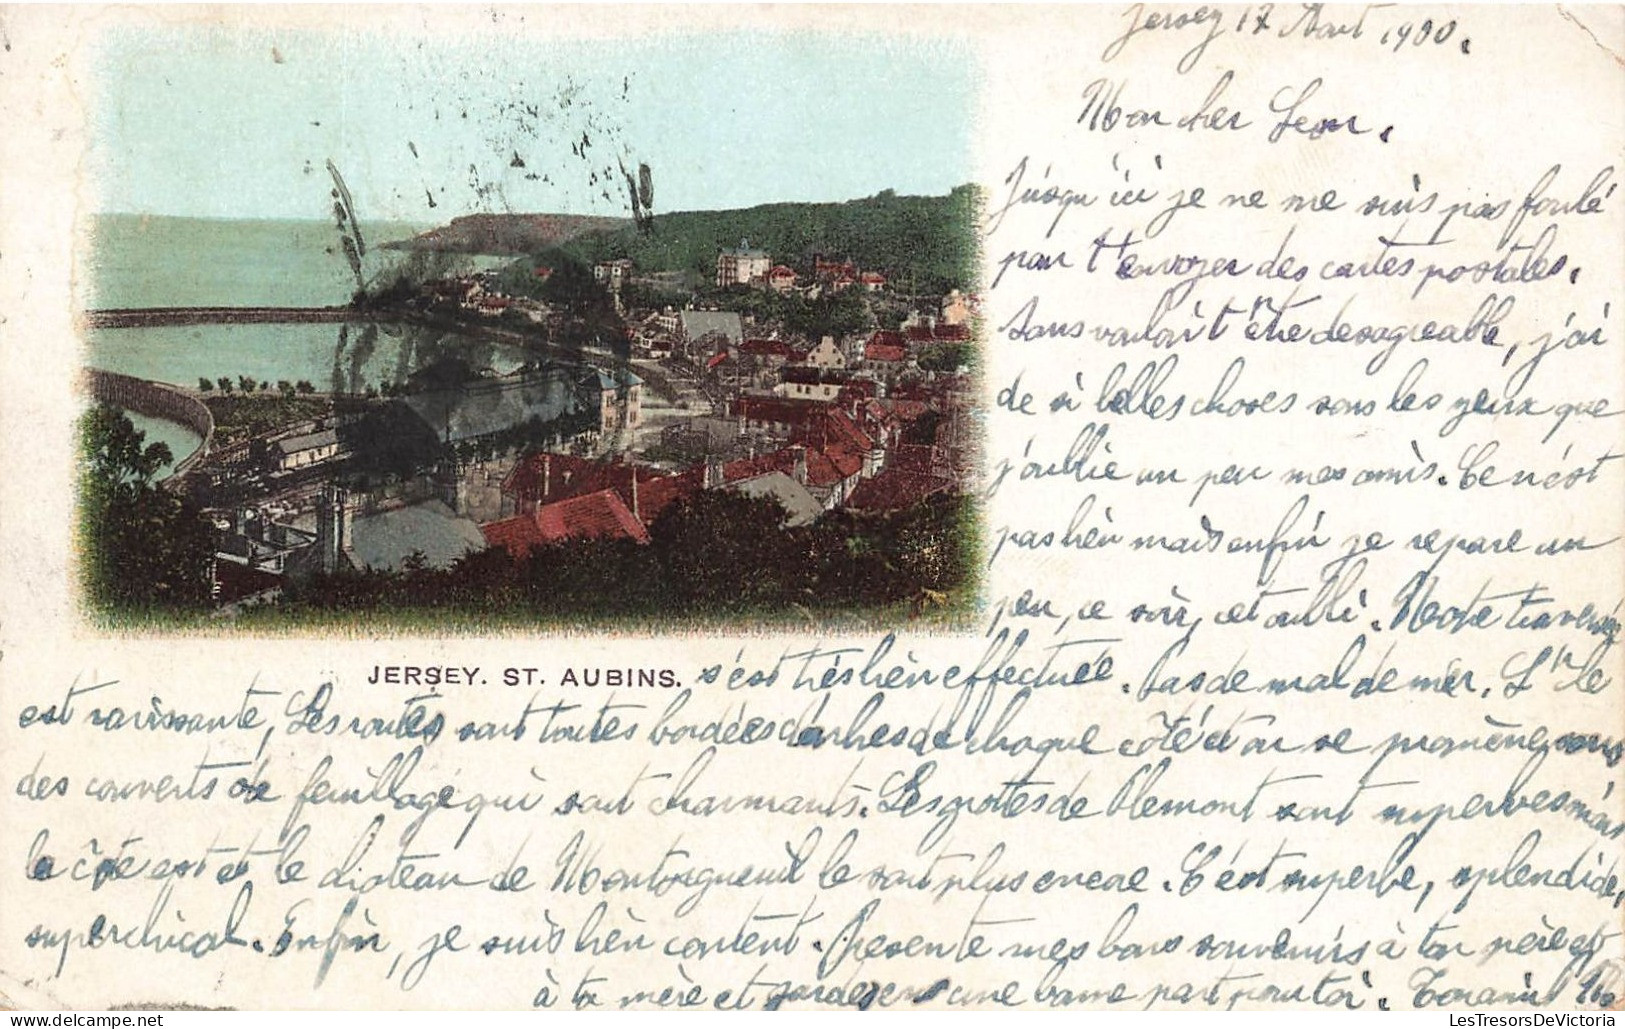 Jersey 17 Aout 1900.
Mon cher Leon.
Jusqu'ici je ne me suis pas foulé
pour t'envoyer des cartes postales.
Sans vouloir t'être desagreable, j'ai
de si belles choses sous les yeux que
j'oublie un peu mes amis. Ce n'est
pas bien mais enfin je repare un
peu, ce soir, cet oubli. Notre traversée
JERSEY. ST. AUBINS. s'est très bien effectuée. Pas de mal de mer. L'Ile
est ravissante, Les routes sont toutes bordées d'arbres de chaque côté et on se promène sous
des couverts de feuillage qui sont charmants. Les grottes de Plemont sont superbes mais
la côte est et le chateau de Montorgueuil le sont plus encore. C'est superbe, splendide,
superchical. Enfin, je suis bien content. Presente mes bons souvenirs à ton père et
à ta mère et gardes en une bonne part pour toi.
LesTresorsDeVictoria